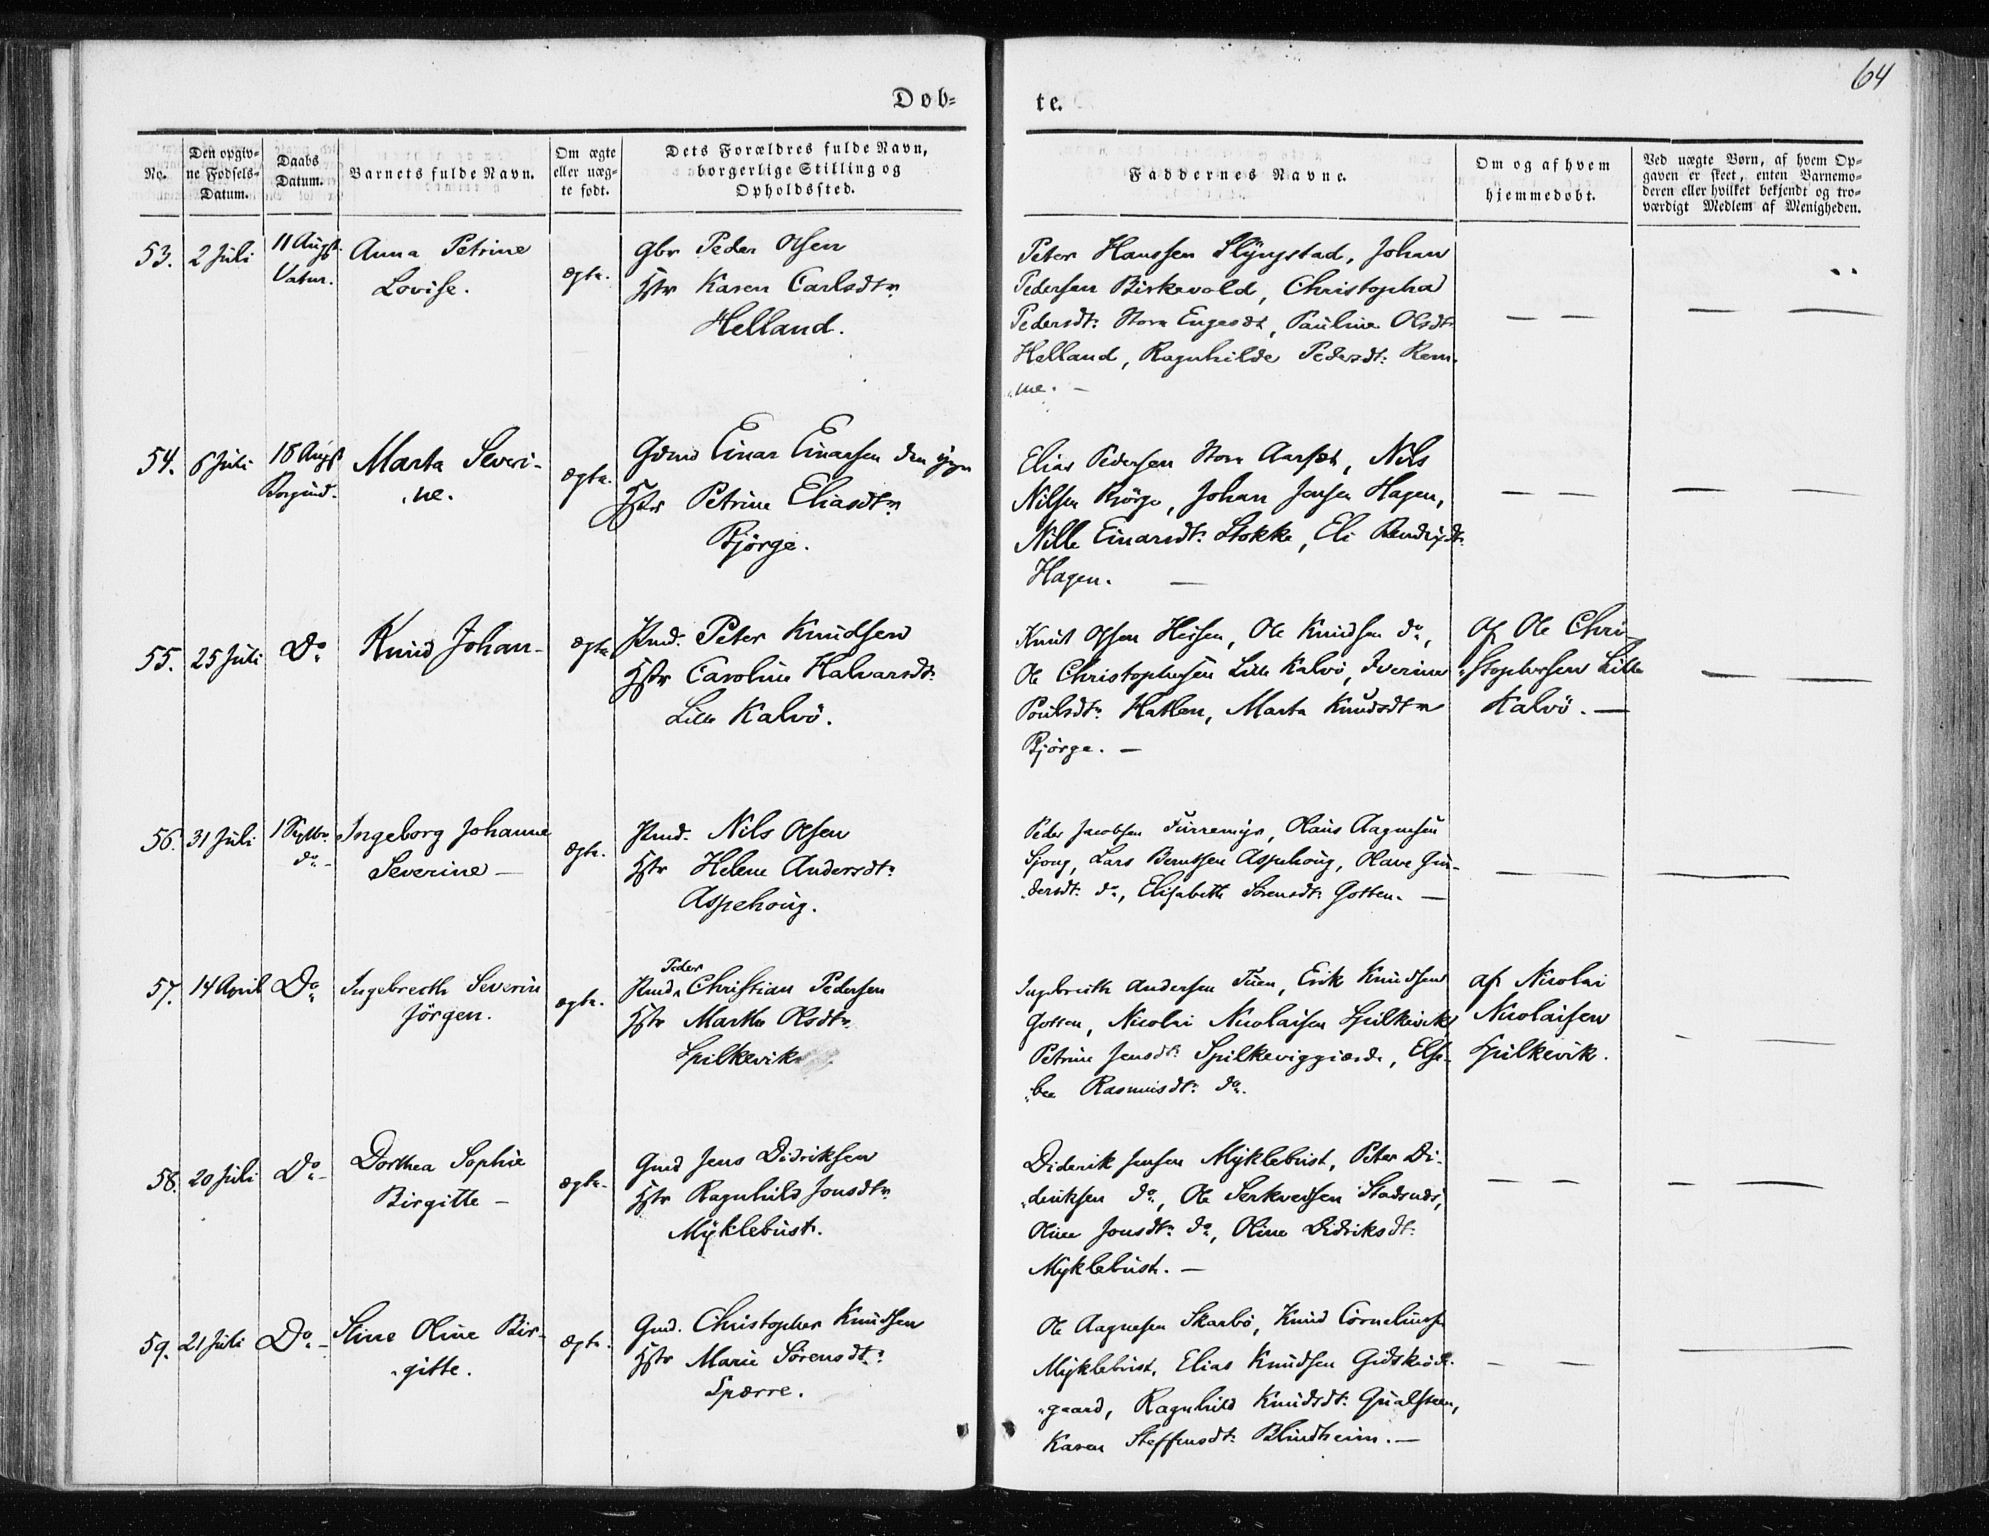 64
Døb=
te.
No.
Den opgiv=
ne Fødsels=
Datum.
Daabs
Datum.
Barnets fulde Navn.
Om ægte
eller uæg=
te født.
Dets Forældres fulde Navn,
borgerlige Stilling og
Opholdssted.
Faddernes Navne.
Om og af hvem
hjemmedøbt.
Ved uægte Børn, af hvem Op=
gaven er skeet, enten Barnemo=
deren eller hvilket bekjendt og tro=
værdigt Medlem af Menigheden.
53. 2 Juli
11 Augst
Vatn.
Anna Petrine
Lovise.
ægte.
Gbr Peder Olsen
Hstr Karen Carlsdtr
Helland.
Peter Hanssen Slyngstad, Johan
Pedersen Birkevold, Christopha
Pedersdt: Store Engeset, Pauline Olsdt:
Helland, Ragnhilde Pedersdt: Rem-
me. —
— —
— —
54. 6 Juli
18 Augst
Borgund.
Marta Severi-
ne.
ægte.
Gdmd Einar Einarsen den yngr
Hstr Petrine Eliasdtr
Bjørge.
Elias Pedersen Store Aarset, Nils
Nilsen Bjørge, Johan Jensen Hagen,
Nille Einarsdt: Stokke, Eli
Hagen. —
— —
— —
55. 25 Juli Do Knud Johan- ægte
Pmd. Peter Knudsen
Hstr Caroline Halvarsdt:
Lille Kalvö.
Knut Olsen Hessen, Ole Knudsen do,
Ole Christophersen Lille Kalvö, Iverine
Poulsdt: Hatlen, Marta Knudsdtr
Bjørge. —
Af Ole Chri-
stophersen Lille
Kalvö. —
— —
56. 31 Juli
1 Septbr
do -
Ingeborg Johanne
Severine —
ægte.
Pmd. Nils Olsen
Hstr Helene Andersdt:
Aspehoug.
Peder Jacobsen Furremyr, Olaus Aagnesen
Sjong, Lars Berntsen Aspehoug, Olave Gun-
dersdt: do, Elisabeth Sørensdt: Gotten. —
—
—
57. 14 April Do
Ingebrecth Severin
Jörgen.
ægte.
Peder
Pmd. Christian Pedersen
Hstr Marthe Olsdtr
Spilkevik
Ingebreith Andersen Tuen, Erik Knudsen
Gotten, Nicolai Nicolaisen Spilkevik,
Petrine Jensdt: Spilkeviggjærde, Else-
bee Rasmusdt: do.
af Nicolai
Nicolaisen
Spilkevik.
- —
58. 20 Juli Do -
Dorthea Sophie
Birgitte —
ægte.
Gmd Jens Didriksen
Hstr Ragnhild Jonsdtr
Myklebust.
Diderik Jensen Myklebust, Peter Di-
deriksen do, Ole Serkvedsen Stadsnes,
Oline Jonsdtr do, Oline Didriksdt:
Myklebust. —
— —
— —
59. 21 Juli Do -
Stine Oline Bir-
gitte.
ægte.
Gmd. Christopher Knudsen
Hstr Marie Sørensdt:
Spærre.
Ole Aagnesen Skarbö, Knud Corneliussen
Myklebust, Elias Knudsen Gidskeöde-
gaard, Ragnhild Knudsdt: Gjualsteen,
Karen Steffensdt: Blindheim. —
— —
—